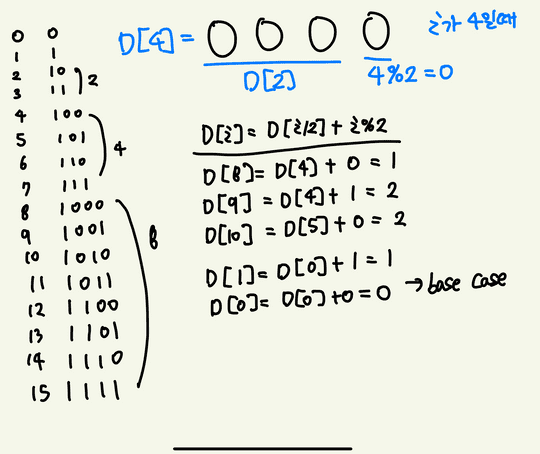 0 0
1 1
2 10
3 11
2
4 100
5 101
6 110
7 111
4
8 1000
9 1001
10 1010
11 1011
12 1100
13 1101
14 1110
15 1111
8
i가 4일때
D[4] = 0 0 0 0
D[2] 4%2 = 0
D[i] = D[i/2] + i%2
D[8] = D[4] + 0 = 1
D[9] = D[4] + 1 = 2
D[10] = D[5] + 0 = 2
D[1] = D[0] + 1 = 1
D[0] = D[0] + 0 = 0 → base case